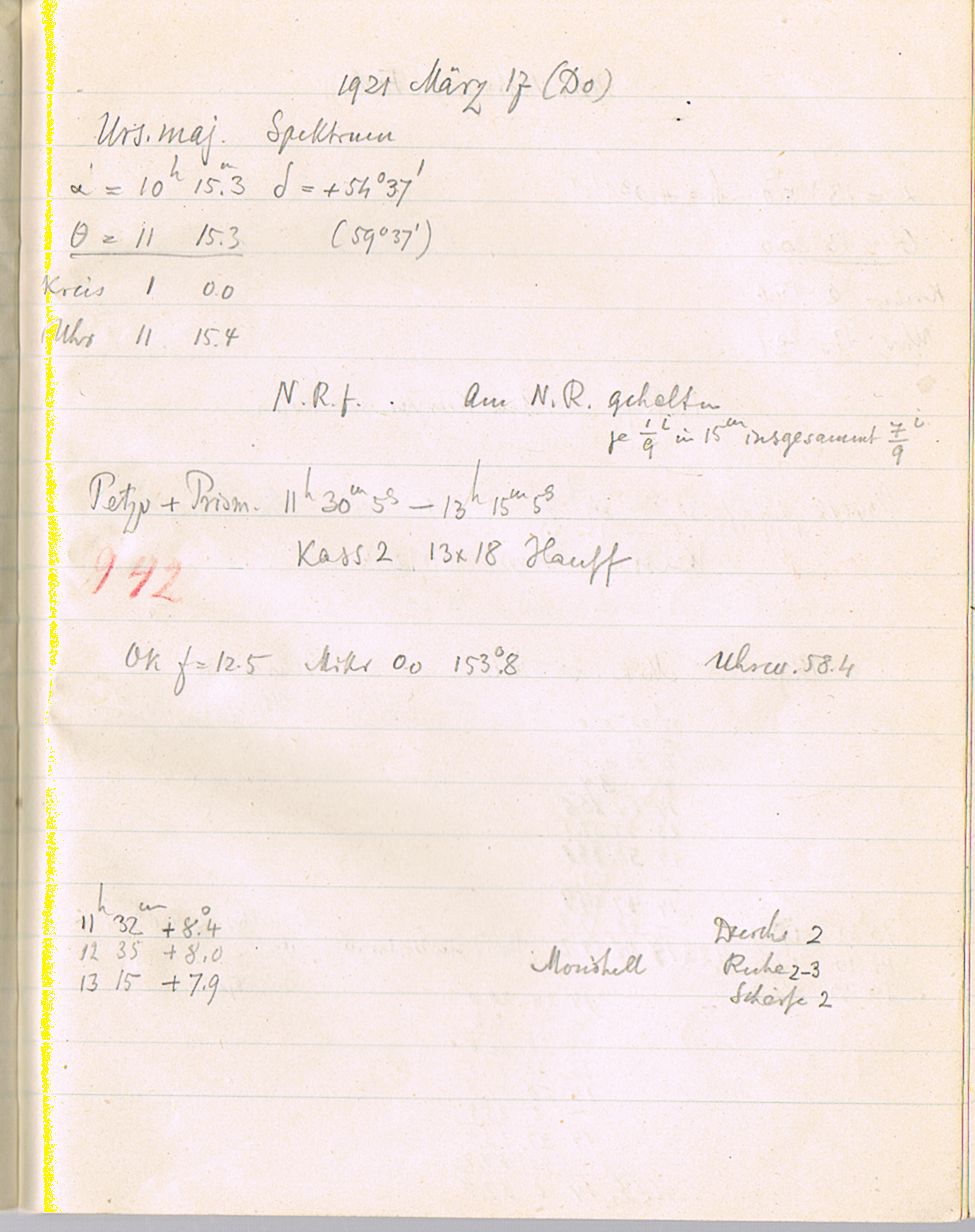 1921 März 17 (Do)
Urs. maj. Spektrum
α = 10ʰ 15.ᵐ3 δ = +54°37'
θ = 11 15.3 (59°37')
Kreis 1 0.0
Uhr 11 15.4
N.R.f. . Am N.R. gehalten
je 1/9 i in 15ᵐ insgesamt 7/9 i
Petzv + Prism. 11ʰ 30ᵐ 5ˢ — 13ʰ 15ᵐ 5ˢ
Kass 2 13x18 Hauff
942
OK f=12.5 Mikr 0.0 153°.8 Uhrw. 58.4
11ʰ 32ᵐ +8°.4 Durchs 2
12 35 +8.0 Mondhell Ruhe 2-3
13 15 +7.9 Schärfe 2